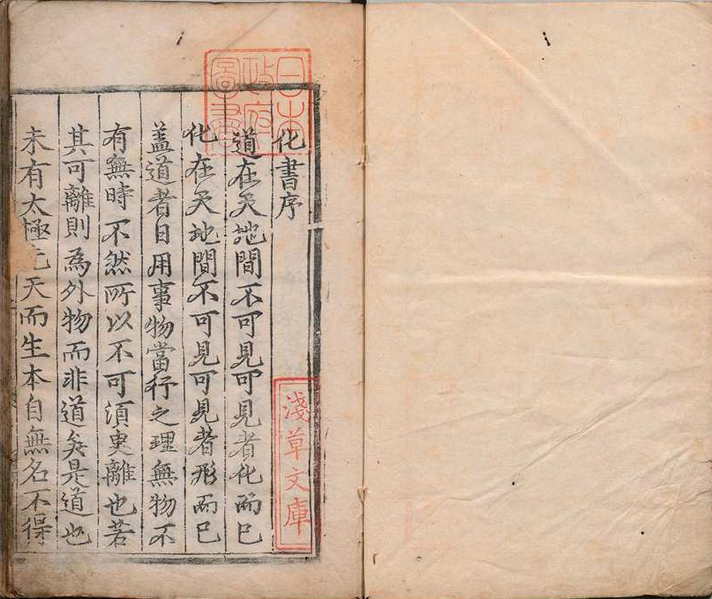 日本
政府
圖書
化書序
淺草文庫
道在天地間不可見可見者化而已
化在天地間不可見可見者形而已
盖道者日用事物當行之理無物不
有無時不然所以不可須臾離也若
其可離則為外物而非道矣是道也
未有太極先天而生本自無名不得